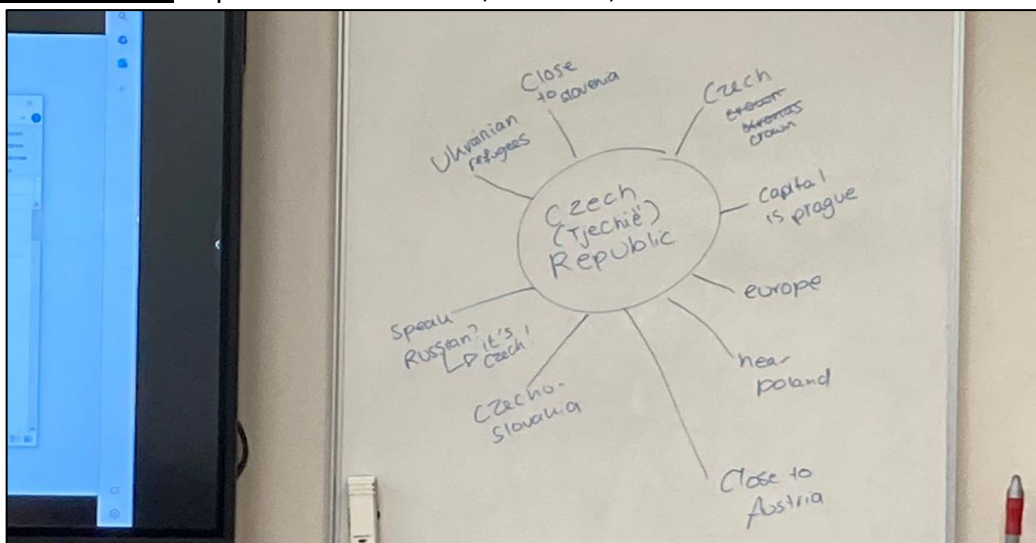 Czech
(Tjechië)
Republic
Close
to slovenia
Czech
crown
capital
is prague
europe
near
poland
Close to
Austria
Czecho-
slovakia
Speak
Russian?
it's
Czech!
Ukrainian
refugees